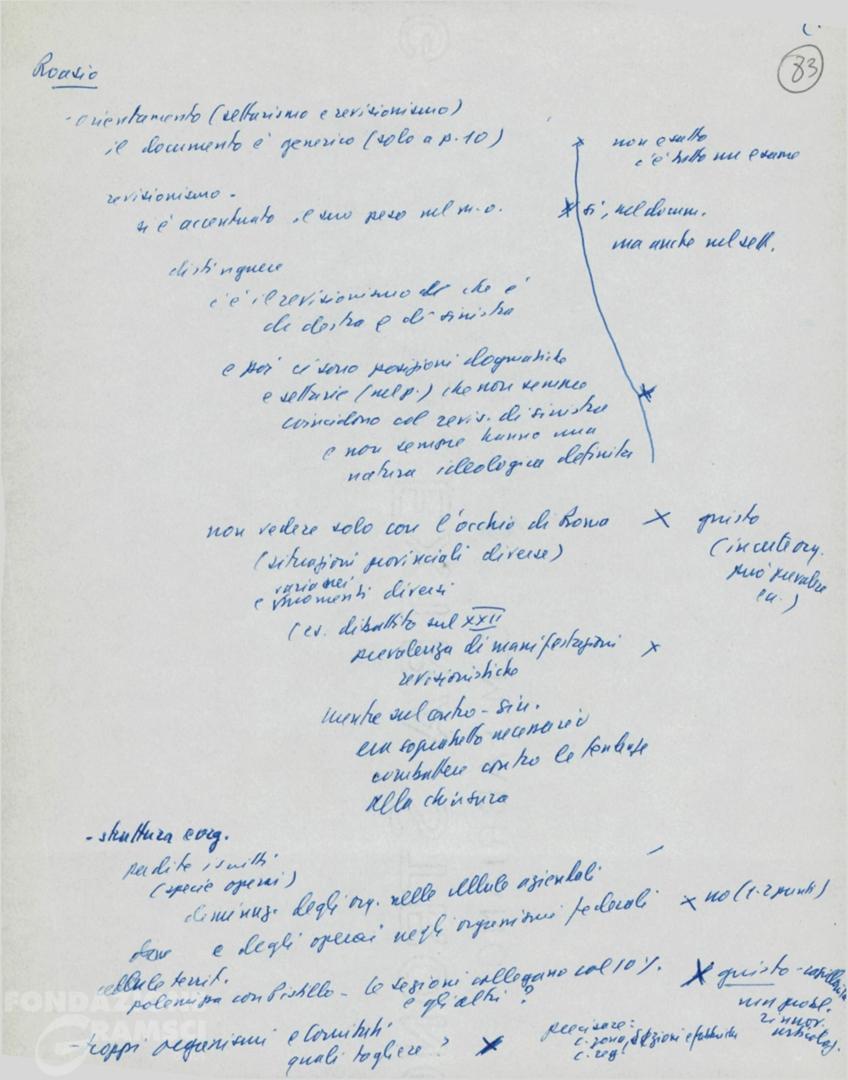 83
Roasio
- orientamento (settarismo e revisionismo)
il documento è generico (solo a p. 10)
x non esatto
c'è tutto un esame
revisionismo -
si è accentuato il suo peso nel m.o.
x si, nel docum.
ma anche nel sett.
distinguere
c'è il revisionismo che è
di destra e di sinistra
e poi ci sono posizioni dogmatiche
e settarie (nel p.) che non sempre
coincidono col revis. di sinistra
x
e non sempre hanno una
natura ideologica definita
non vedere solo con l'occhio di Roma x giusto
(situazioni provinciali diverse)
(in certe org.
può prevalere
e momenti diversi
(es. dibattito sul XXII
prevalenza di manifestazioni x
revisionistiche
mentre sul centro-sin.
era soprattutto necessario
combattere contro le tendenze
alla chiusura
- struttura e org.
perdite iscritti
(specie operai)
diminuz. degli org. nelle cellule aziendali
e degli operai negli organismi federali x no (1-2 punti)
cellule territ.
polemizza con Pistillo - le sezioni collegano col 10%. x giusto -
e gli altri?
min probl.
rinnov.
- troppi organismi e Comitati
quali togliere? x
precisare:
c. zona, sezioni
c. reg.
FONDAZIONE
GRAMSCI